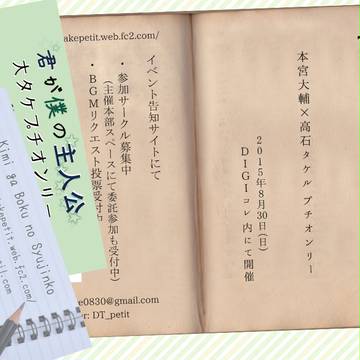 君が僕の主人公
大タケプチオンリー
Kimi ga Boku no Syujinko
akepetit.web.fc2.com/
イベント告知サイトにて
・参加サークル募集中
(主催本部スペースにて委託参加も受付中)
・BGMリクエスト投票受付中
e0830@gmail.com
er: DT_petit
本宮大輔×高石タケル プチオンリー
2015年8月30日(日)
DIGIコレ内にて開催